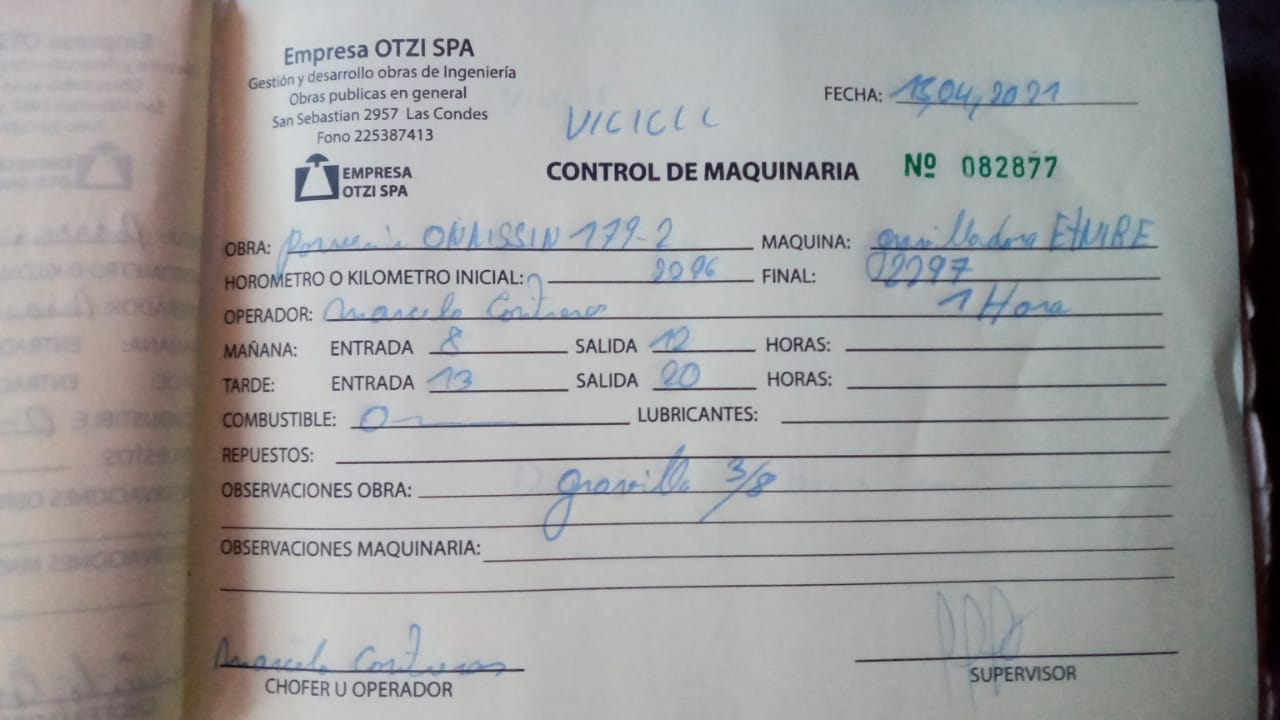 Empresa OTZI SPA
Gestión y desarrollo obras de Ingeniería
Obras publicas en general
San Sebastian 2957 Las Condes
Fono 225387413
EMPRESA
OTZI SPA
FECHA: 15,04,2021
CONTROL DE MAQUINARIA Nº 082877
OBRA: ONAISSIN 179-2 MAQUINA: gravilladora
HOROMETRO O KILOMETRO INICIAL: 2296 FINAL: 02297
OPERADOR: Marcelo Contreras 1 Hora
MAÑANA: ENTRADA 8 SALIDA 12 HORAS:
TARDE: ENTRADA 13 SALIDA 20 HORAS:
COMBUSTIBLE: 0 LUBRICANTES:
REPUESTOS:
OBSERVACIONES OBRA: gravilla 3/8
OBSERVACIONES MAQUINARIA:
Marcelo Contreras
CHOFER U OPERADOR
SUPERVISOR